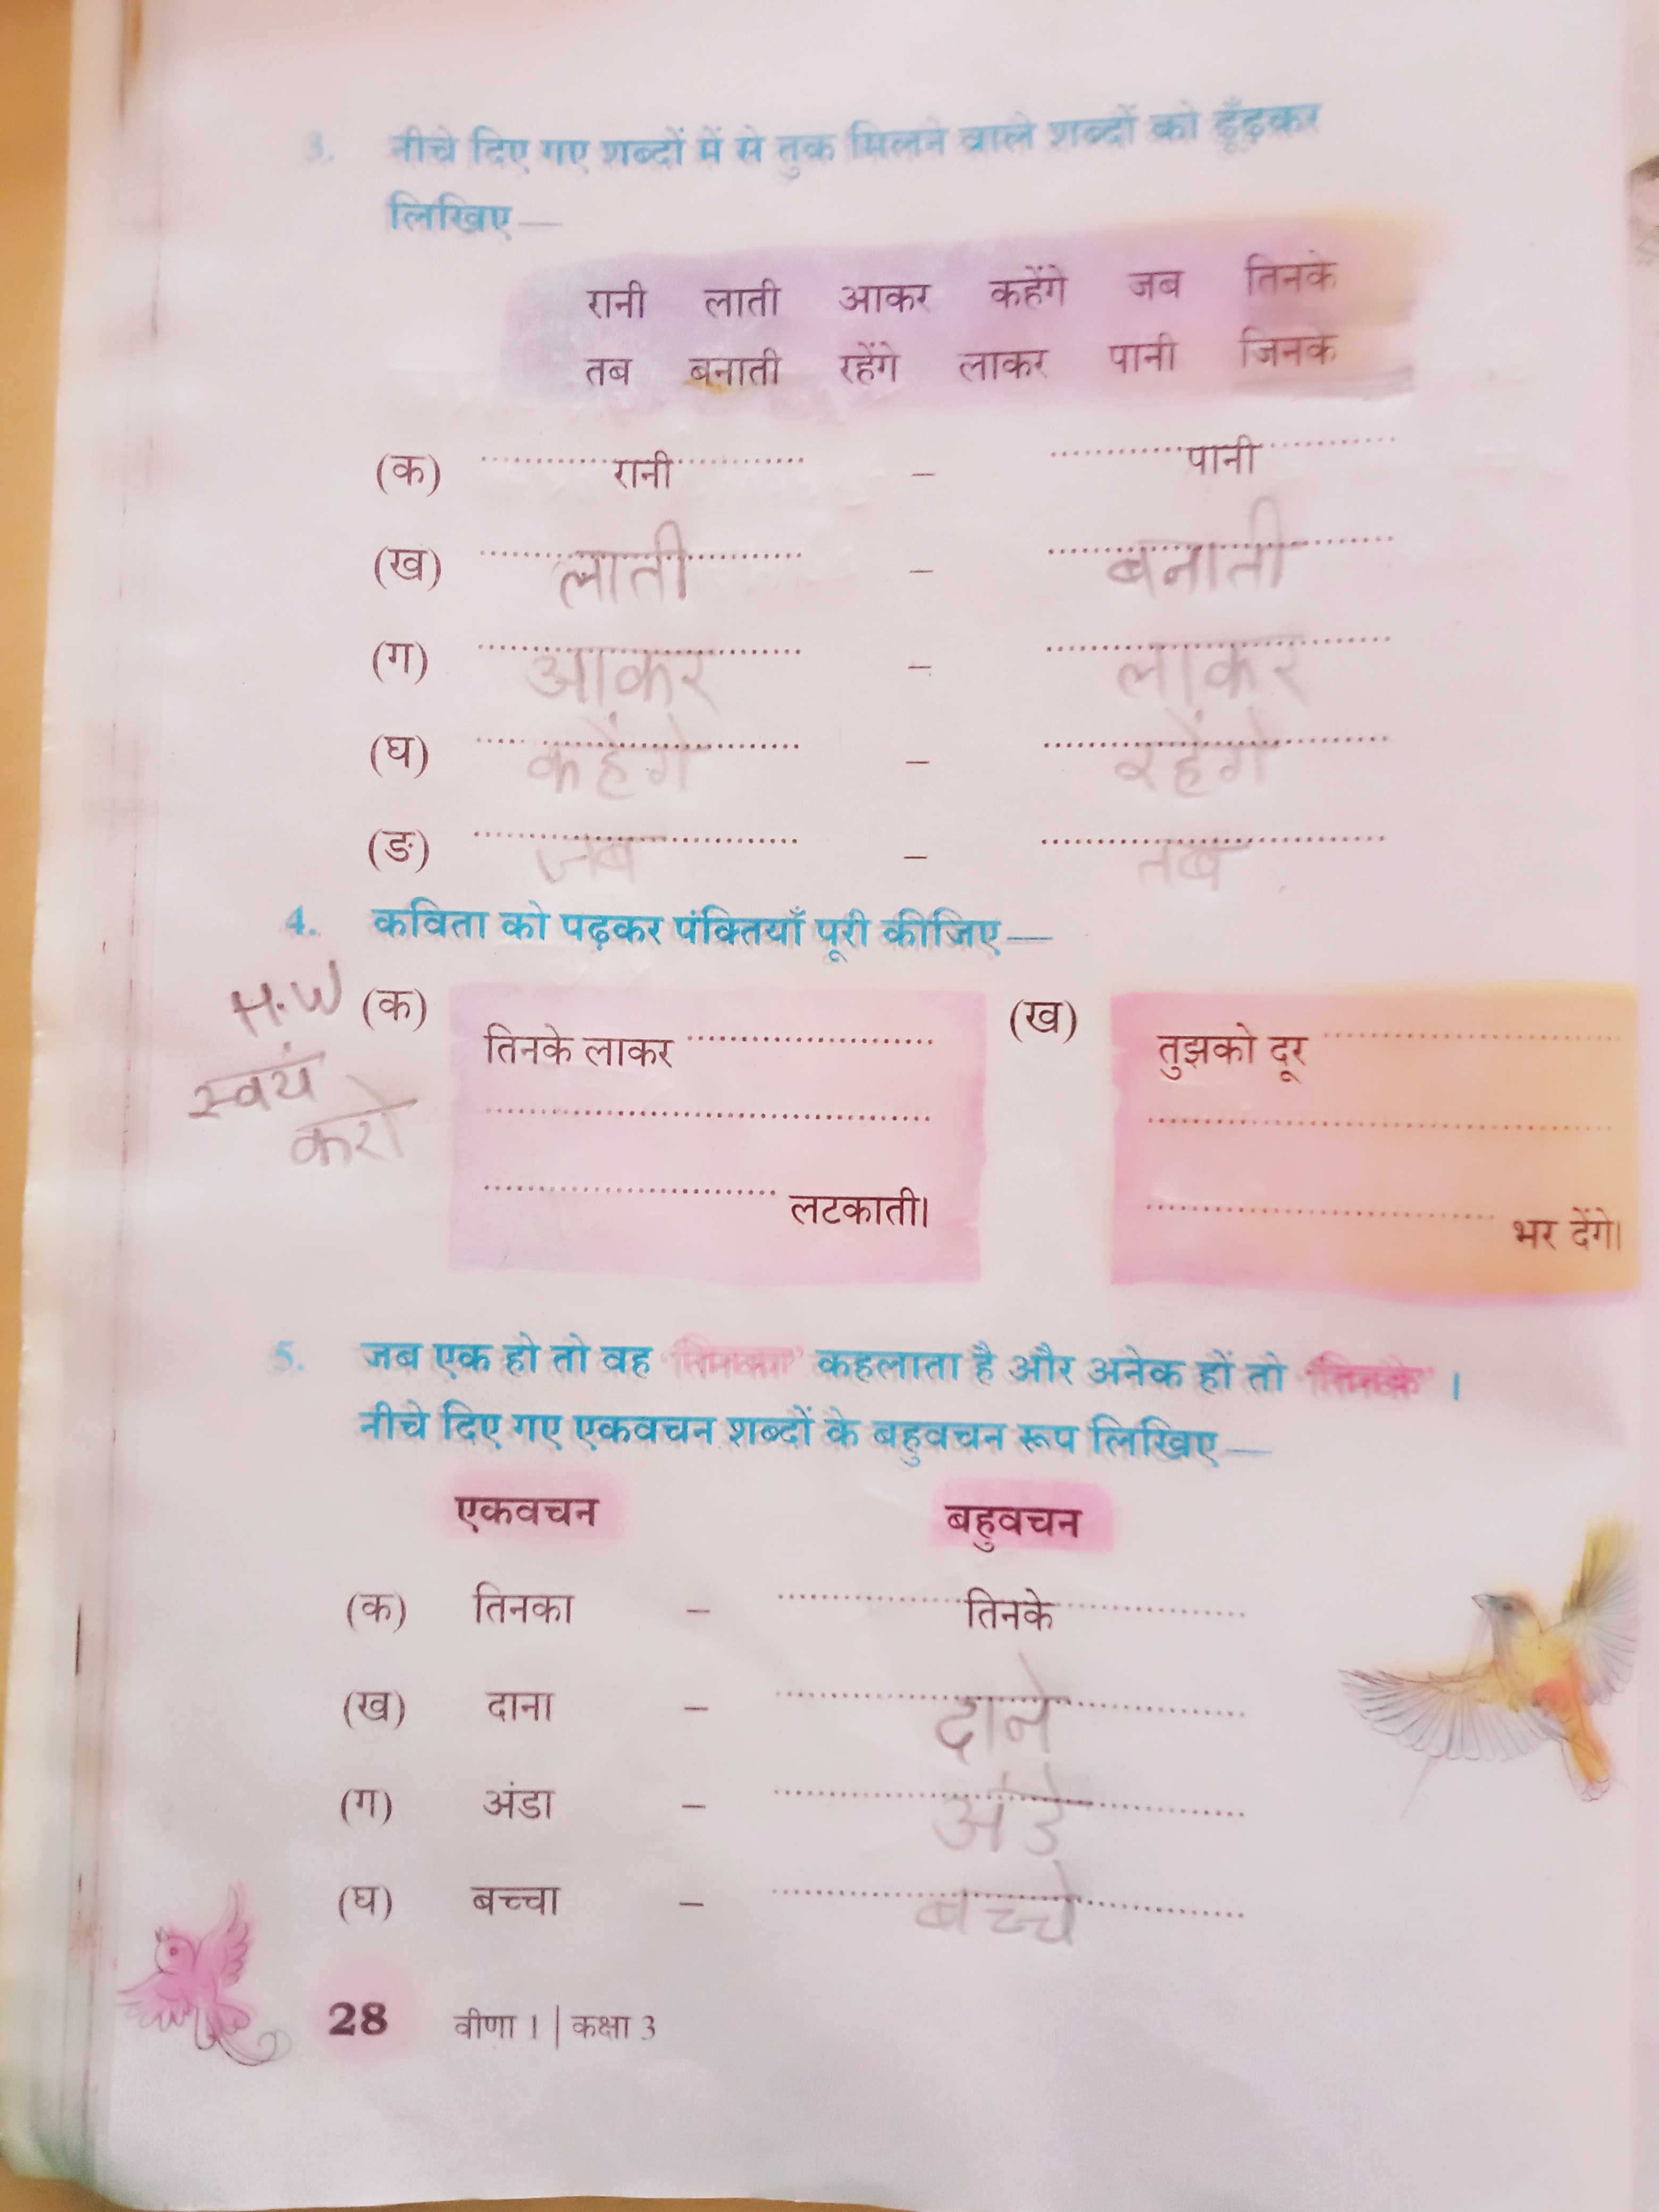 3. नीचे दिए गए शब्दों में से तुक मिलने वाले शब्दों को ढूँढ़कर
लिखिए—
रानी लाती आकर कहेंगे जब तिनके
तब बनाती रहेंगे लाकर पानी जिनके
(क) रानी – पानी
(ख) लाती – बनाती
(ग) आकर – लाकर
(घ) कहेंगे – रहेंगे
(ङ) जब – तब
4. कविता को पढ़कर पंक्तियाँ पूरी कीजिए—
H.W
स्वयं
करो
(क) तिनके लाकर ........................
........................
........................ लटकाती।
(ख) तुझको दूर ........................
........................
........................ भर देंगे।
5. जब एक हो तो वह 'तिनका' कहलाता है और अनेक हों तो 'तिनके' ।
नीचे दिए गए एकवचन शब्दों के बहुवचन रूप लिखिए—
एकवचन बहुवचन
(क) तिनका – तिनके
(ख) दाना – दाने
(ग) अंडा – अंडे
(घ) बच्चा – बच्चे
28 वीणा 1 | कक्षा 3